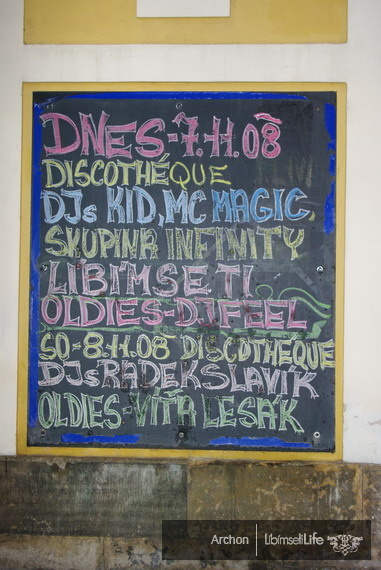 DNES-7.11.08
DISCOTHÉQUE
DJs KID, MC MAGIC,
SKUPINA INFINITY
LIBÍMSETI
OLDIES-DJ FEEL
SO-8.11.08 DISCOTHEQUE
DJs RADEK SLAVÍK
OLDIES-VÍŤA LESÁK
Archon | LíbímsetiLife